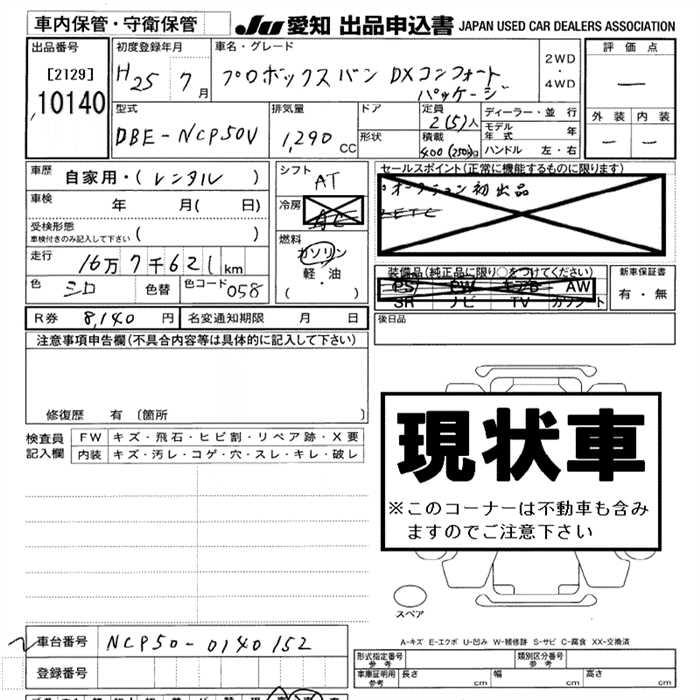 車内保管・守衛保管
JU 愛知 出品申込書 JAPAN USED CAR DEALERS ASSOCIATION
出品番号
[2129]
10140
初度登録年月
H25 7月
車名・グレード
プロボックスバン DXコンフォート
パッケージ
2WD
・
4WD
評価点
―
外装 内装
― ―
型式
DBE-NCP50V
排気量
1,290 CC
ドア
形状
定員
2(5)人
積載
400(250)kg
ディーラー・並行
モデル年式 年
ハンドル 左・右
車歴 自家用・(レンタル)
車検 年 月( 日)
受検形態
車検付きのみ記入して下さい ( )
走行 16万7千621km
色 シロ 色替 色コード 058
シフト AT
冷房 AC
燃料
ガソリン
軽・油
( ・ )
セールスポイント(正常に機能するものに限ります)
・オークション初出品
・ETC
装備品(純正品に限り○をつけてください)
PS PW キアB AW
SR ナビ TV カワソート
新車保証書
有・無
R券 8,140円 名変通知期限 月 日
後日品
注意事項申告欄(不具合内容等は具体的に記入して下さい)
修復歴 有 〔箇所 〕
検査員
記入欄
FW キズ・飛石・ヒビ割・リペア跡・X要
内装 キズ・汚レ・コゲ・穴・スレ・キレ・破レ
現状車
※このコーナーは不動車も含み
ますのでご注意下さい
スペア
A-キズ E-エクボ U-凹み W-補修跡 S-サビ C-腐食 XX-交換済
車台番号 NCP50-0140152
登録番号
形式指定番号
参考
類別区分番号
参考
車庫証明用
参考
長さ cm 幅 cm 高さ cm